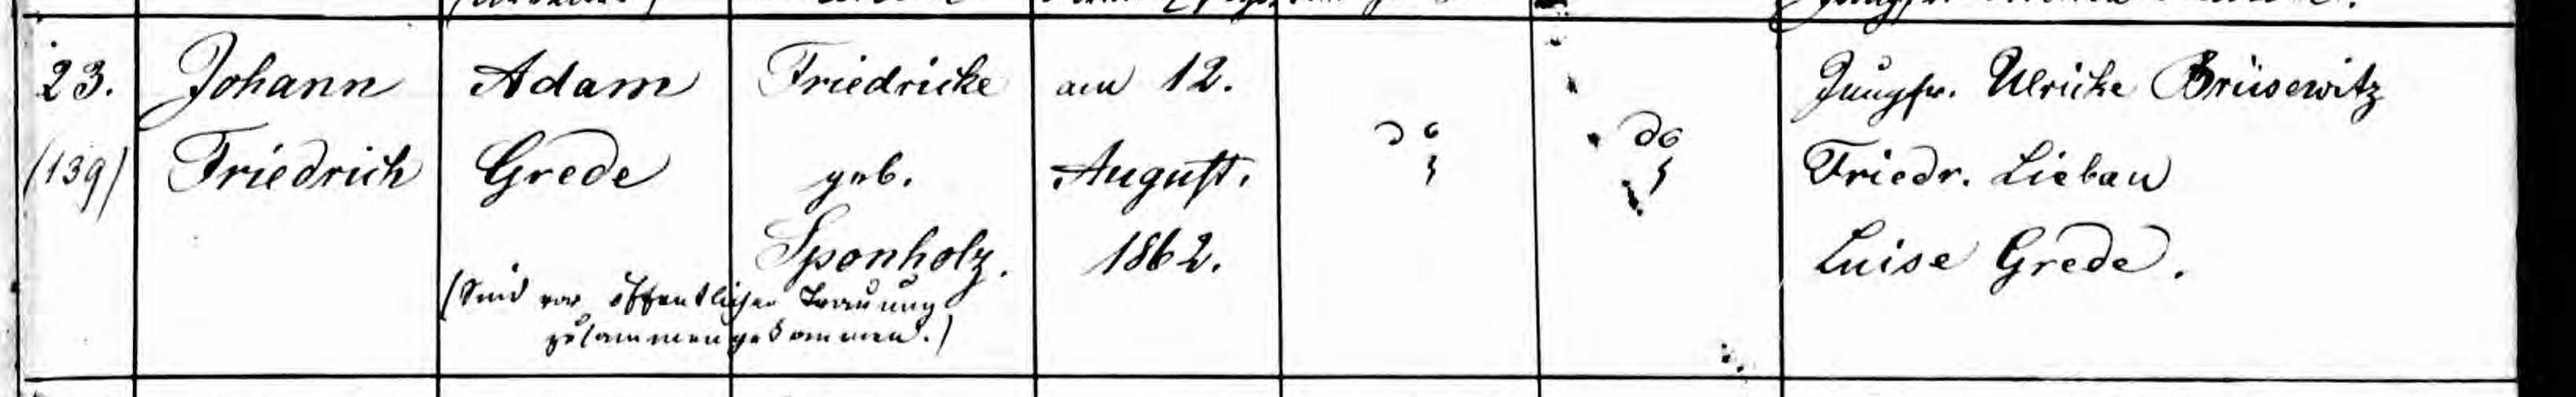 23.
(139)
Johann
Friedrich
Adam
Grede
Friedricke
geb.
Sponholz.
(Sind vor öffentlicher Trauung
zusammengekommen.)
am 12.
August.
1862.
do
do
Jungfr. Ulricke Brüsewitz
Friedr. Liebau
Luise Grede.